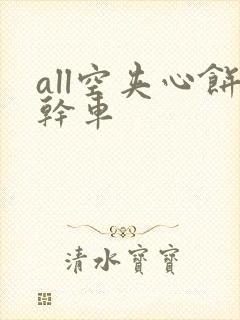 all空夹心餅
幹車
清水寶寶